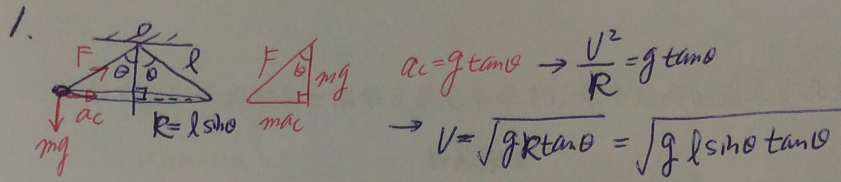 1.
O
F θ θ l
ac
mg
R = l sinθ
F θ mg
mac
ac = g tanθ → V²/R = g tanθ
→ V = √(gR tanθ) = √(g l sinθ tanθ)